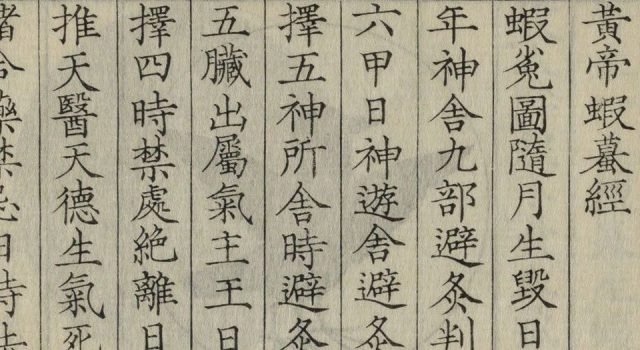 黃帝蝦蟇經
蝦兎圖隨月生毀日
年神舍九部避灸判
六甲日神遊舍避灸
擇五神所舍時避灸
五臟出屬氣主王日
擇四時禁處絶離日
推天醫天德生氣死
諸合藥禁忌日時法